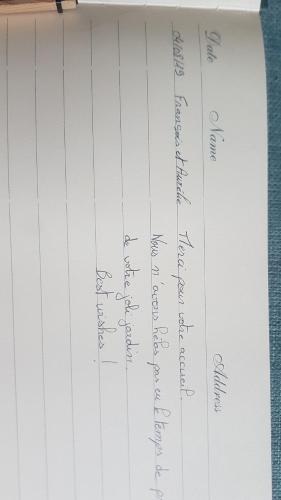 Date Name Address
François et Aurélie Merci pour votre accueil.
Nous n'avons hélas pas eu le temps de p
de votre joli jardin.
Best wishes!